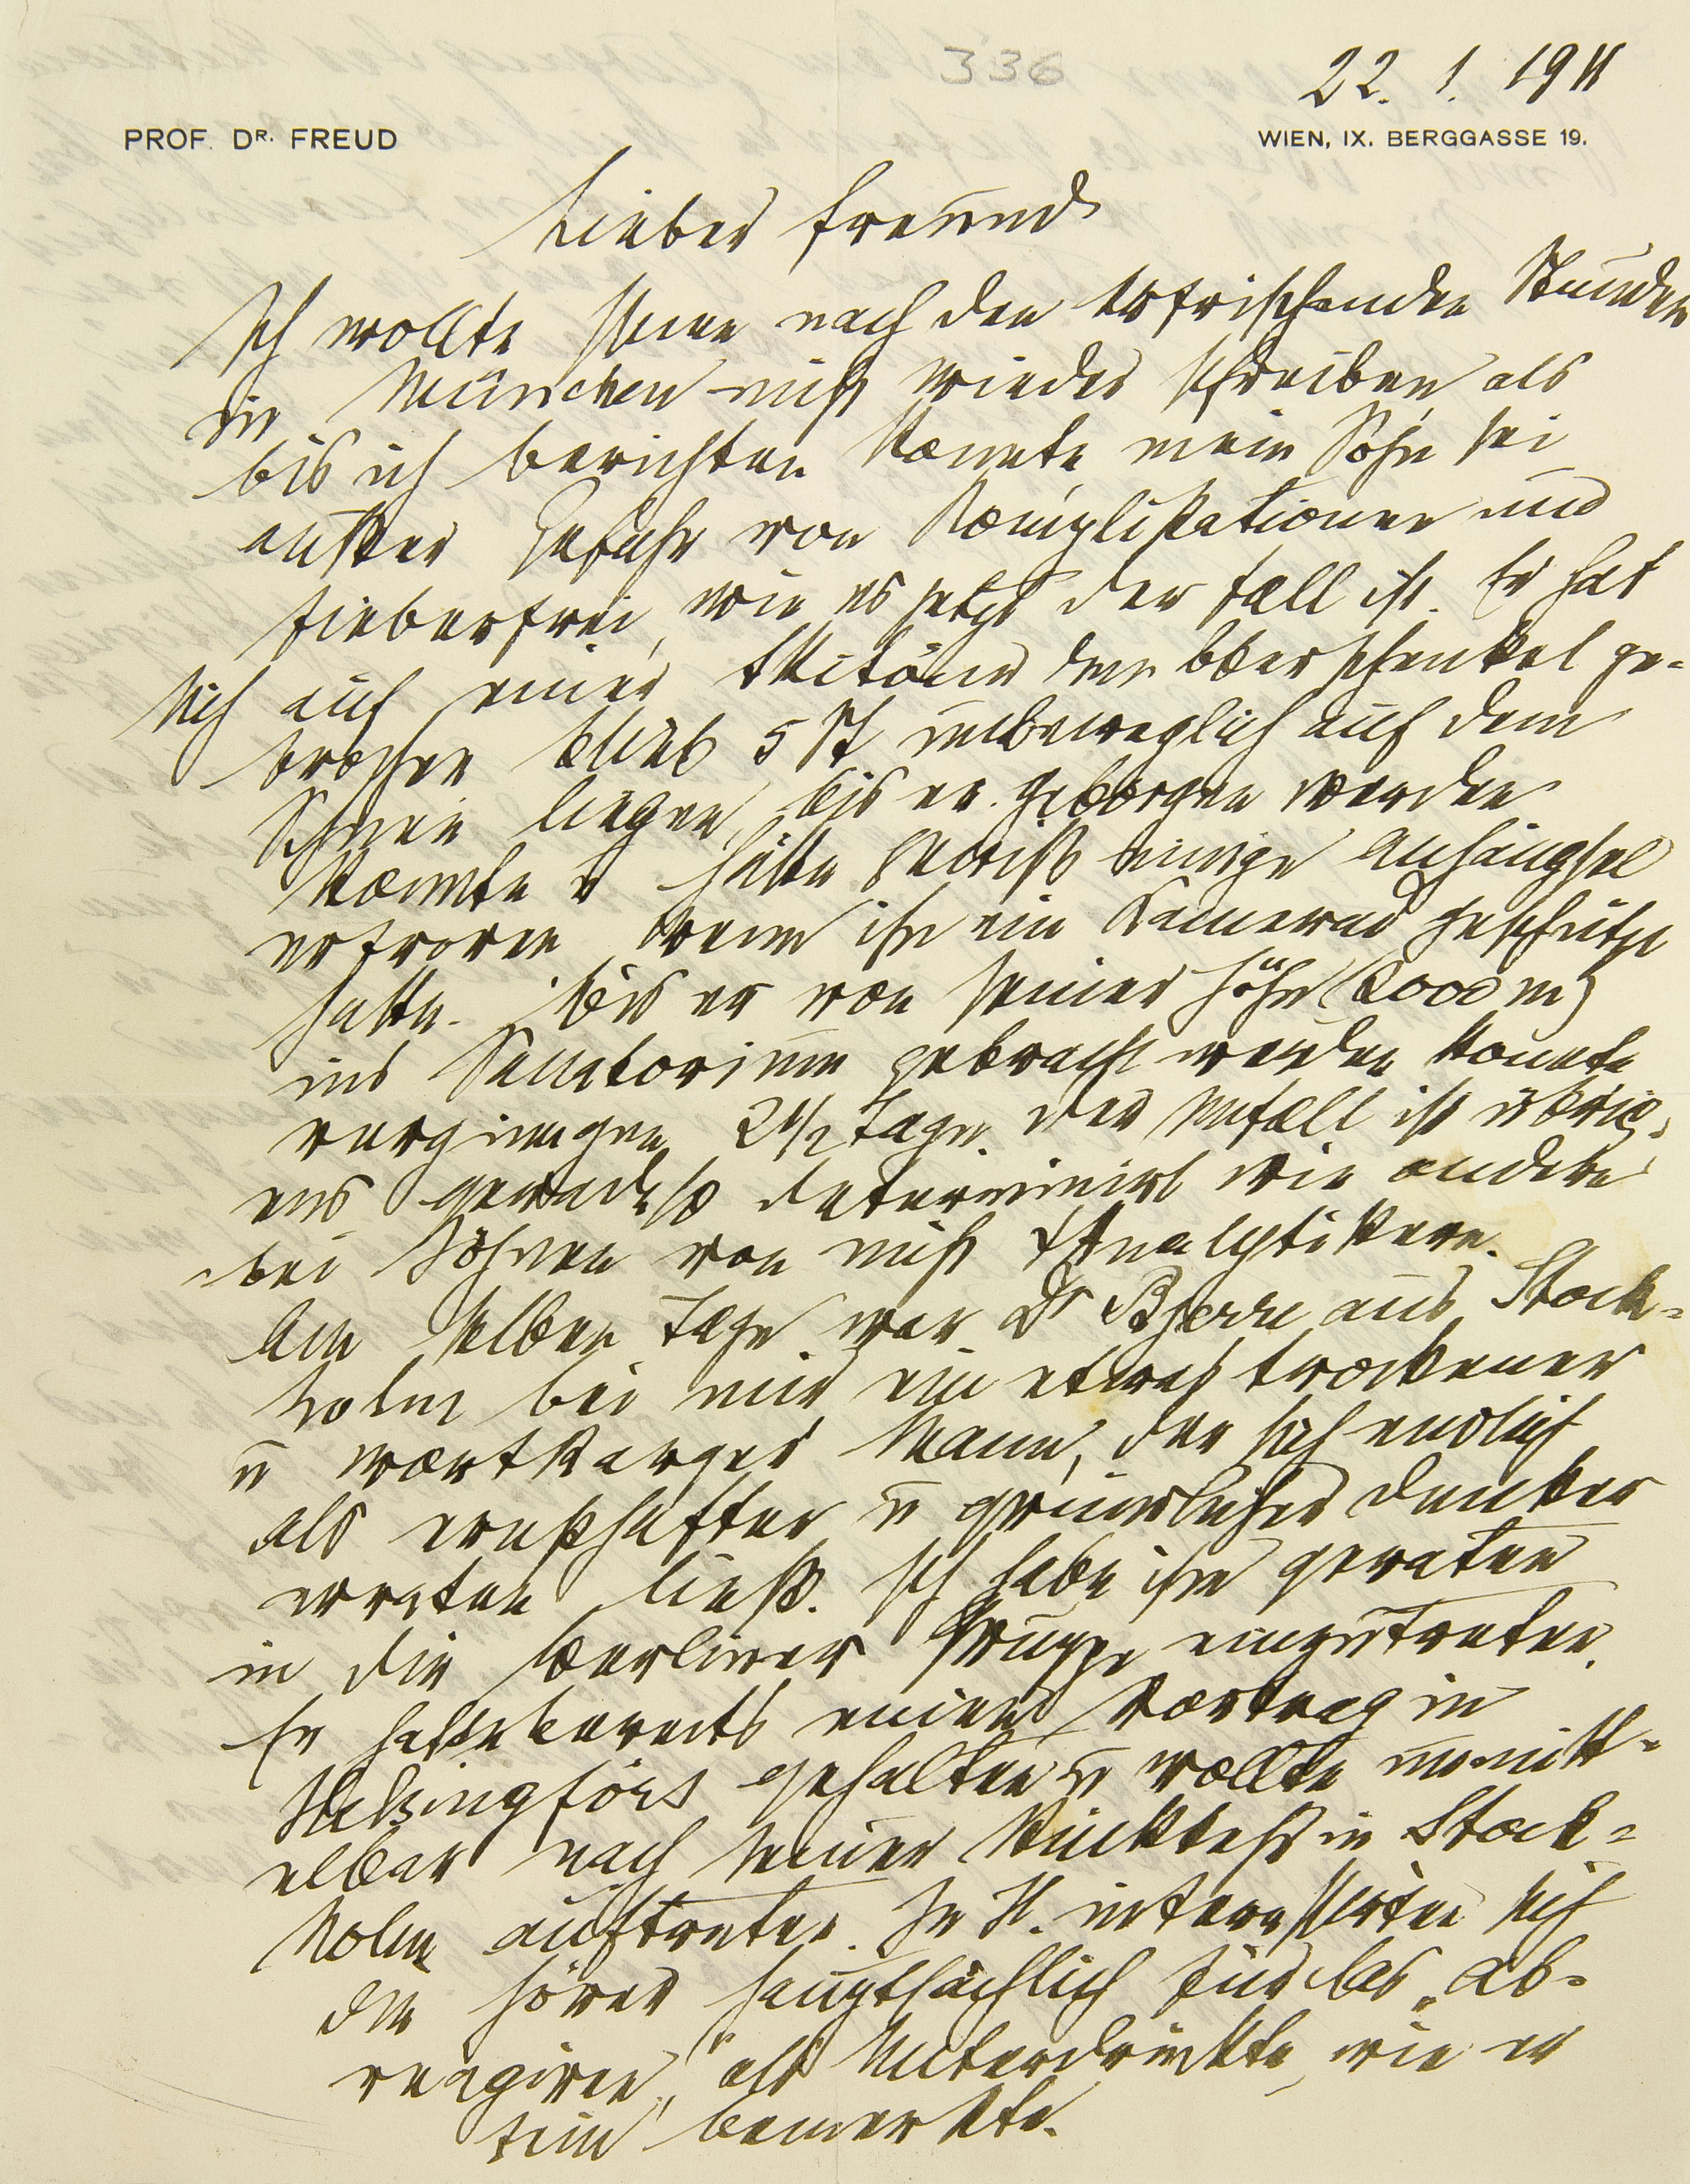 336
22. 1. 1911
PROF. DR. FREUD
WIEN, IX. BERGGASSE 19.
Lieber Freund
Ich wollte Ihnen nach den erfrischenden Stunden
in München nicht wieder schreiben als
bis ich berichten konnte, mein Sohn sei
außer Gefahr von Komplikationen und
fieberfrei, wie es jetzt der Fall ist. Er hat
sich auf einer Skitour den Oberschenkel ge-
brochen, blieb 5 St unbeweglich auf dem
Schnee liegen, bis er geborgen werden
konnte u hätte gewiß einige Anhängsel
erfroren, wenn ihn ein Kamerad geschützt
hätte. Bis er von seiner Höhe (2000 m)
ins Sanatorium gebracht werden konnte
vergingen 2 1/2 Tage. Der Unfall ist übrig-
ens geradeso determinirt wie andere
bei Söhnen von nicht Analytikern.
Am selben Tage war Dr Bjerre aus Stock-
holm bei mir ein etwas trockener
u wortkarger Mann, der sich endlich
als ernsthafter u gründlicher Denker
erraten ließ. Ich habe ihm geraten
in die Berliner Gruppe einzutreten.
Er hatte bereits einen Vortrag in
Helsingfors gehalten u wollte unmitt-
elbar nach seiner Rückkehr in Stock-
holm auftreten. In H. interessirten sich
die Hörer hauptsächlich für das „Ab-
reagiren“, als Unterdrückte, wie er
fein bemerkte.